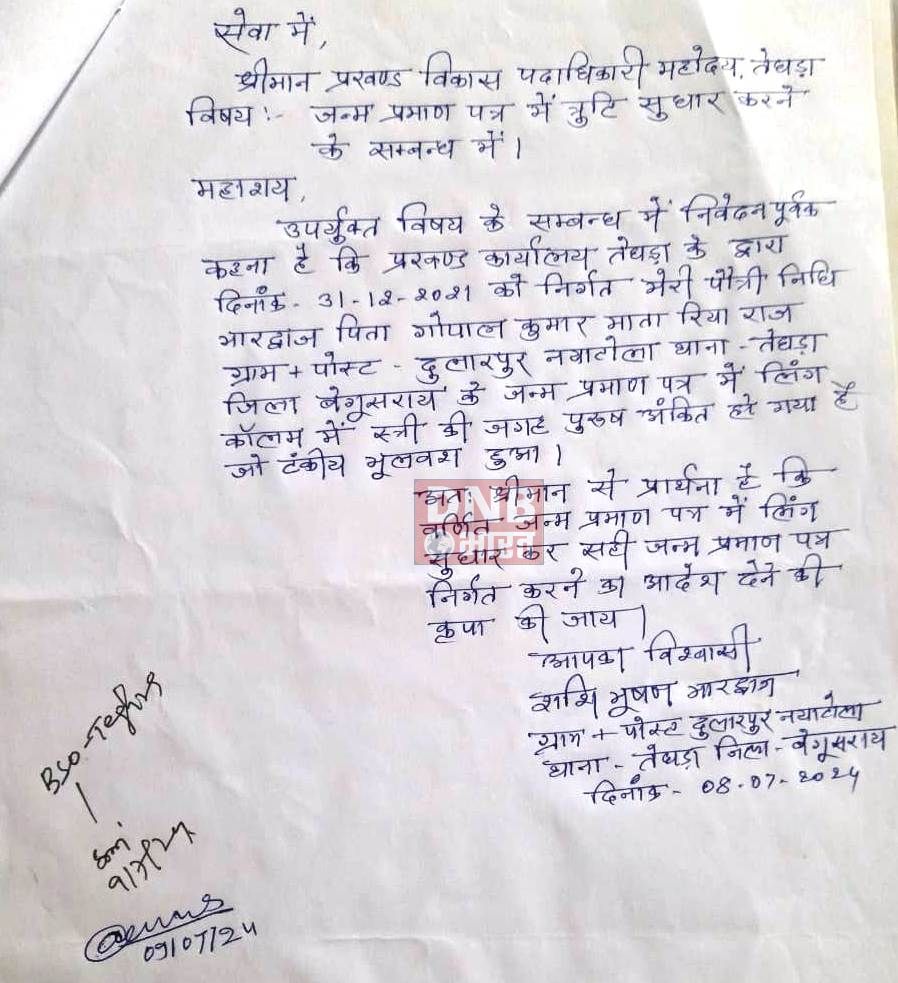 सेवा में,
श्रीमान प्रखण्ड विकास पदाधिकारी महोदय, तेघड़ा
विषय :- जन्म प्रमाण पत्र में त्रुटि सुधार करने
के सम्बन्ध में।
महाशय,
उपर्युक्त विषय के सम्बन्ध में निवेदनपूर्वक
कहना है कि प्रखण्ड कार्यालय तेघड़ा के द्वारा
दिनांक- 31-12-2021 को निर्गत मेरी पौत्री निधि
भारद्वाज पिता गोपाल कुमार माता रिया राज
ग्राम + पोस्ट - दुलारपुर नयाटोला थाना - तेघड़ा
जिला बेगूसराय के जन्म प्रमाण पत्र में लिंग
कॉलम में स्त्री की जगह पुरुष अंकित हो गया है
जो टंकीय भूलवश हुआ।
अतः श्रीमान से प्रार्थना है कि
वर्णित जन्म प्रमाण पत्र में लिंग
सुधार कर सही जन्म प्रमाण पत्र
निर्गत करने का आदेश देने की
कृपा की जाय।
आपका विश्वासी
शशि भूषण भारद्वाज
ग्राम + पोस्ट दुलारपुर नयाटोला
थाना - तेघड़ा जिला - बेगूसराय
दिनांक - 08-07-2024
DNB
भारत
BSO-
09/07/24